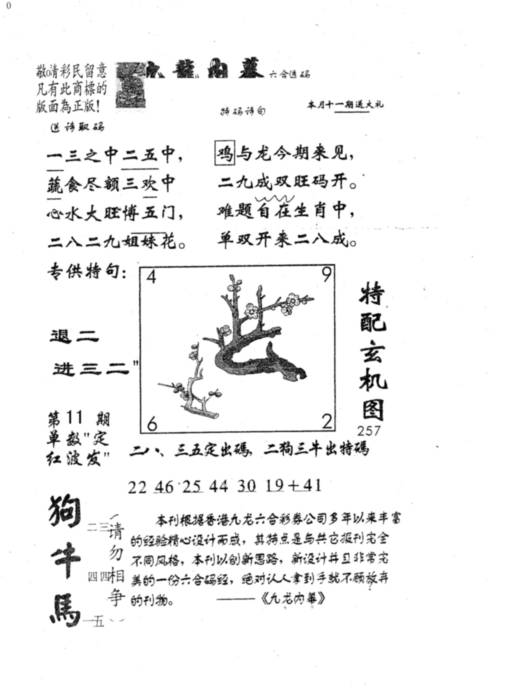 0
敬请彩民留意
凡有此商標的
版面為正版!
九龍内幕 六合送码
特码诗句
本月十一期送大礼
送诗取码
一三之中二五中,
鸡与龙今期来见,
蔬食尽额三欢中
二九成双旺码开。
心水大旺博五门,
难题自在生肖中,
二八二九姐妹花。
单双开来二八成。
专供特句:
4
9
6
2
退二
进三二"
特配玄机图
257
第11期
单数"定
红波发"
二八、三五定出碼,二狗三牛出特碼
22 46 25 44 30 19+41
狗牛馬
二三
四四
一五
请勿相争
本刊根据香港九龙六合彩券公司多年以来丰富
的经验精心设计而成,其特点是与其它报刊完全
不同风格,本刊以创新思路,新设计并且非常完
美的一份六合码经,绝对认人拿到手就不愿放弃
的刊物。 ——《九龙内幕》